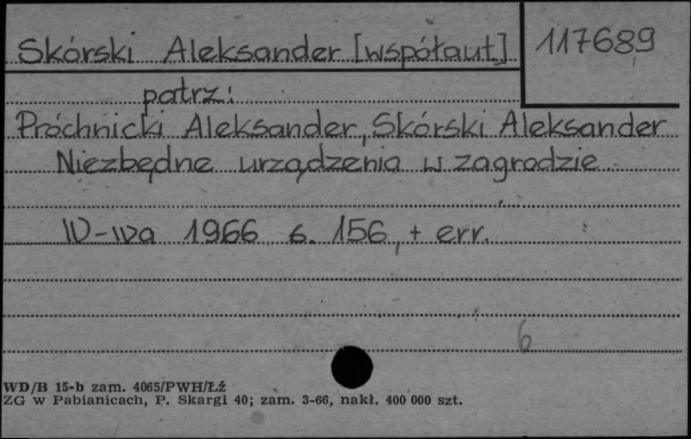 Skórski Aleksander [współaut.]
117689
patrz:
Próchnicki Aleksander, Skórski Aleksander
Niezbędne urządzenia w zagrodzie.
W-wa 1966 s. 156, + err.
6
WD/B 15-b zam. 4065/PWH/Łź
ZG w Pabianicach, P. Skargi 40; zam. 3-66, nakł. 400 000 szt.